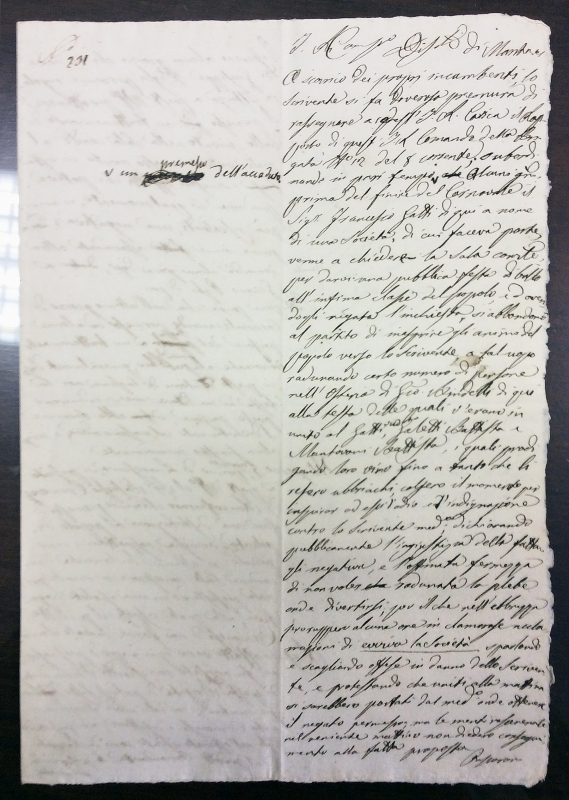 N° 231
I. R. Comm° Distle di Mantova
A scarico dei propri incombenti lo
scrivente si fa doverosa premura di
rassegnare a quest' I. R. Carica il Rap
porto di quest' I. R. Comando della Bri
gata N° 12 del 8 corrente, subordi
nando in pari tempo, che alcuni gni
v un premesso dell'accaduto
prima del finire del Carnovale il
Sigr Francesco Gatti di qui a nome
di una Società, di cui faceva parte,
venne a chiedere la Sala comle
per darvi una pubblica festa di ballo
all' infima classe del popolo e d'aven
dogli negata l'inchiesta, si abbandonò
al partito di inasprire gli animi del
popolo verso lo scrivente, a tal uopo
radunando certo numero di persone
nell' Osteria di Gio di qui
alla testa delle quali v'erano in
unito al Gatti Galetti Battista e
Mantovani Battista, i quali prodi
gando loro vino fino a tanto che li
resero ubbriachi, colsero il momento per
inspirar ad essi l'odio e l'indignazione
contro lo scrivente medo dichiarando
pubblicamente l'ingiustizia della fatta
gli negativa, e l'ostinata fermezza
di non voler radunata la plebe
onde divertirsi, per il che nell' ebbrezza
proruppero alcune ore in clamorose accla
mazioni di evviva la Società sparlando
e scagliando offese in danno dello Scriven
te, e protestando che uniti alla mattina
si sarebbero portati dal medo onde ottenere
il negato permesso, ma le menti rasserenate
nel veniente mattino non diedero consegui
mento alla fatta proposta